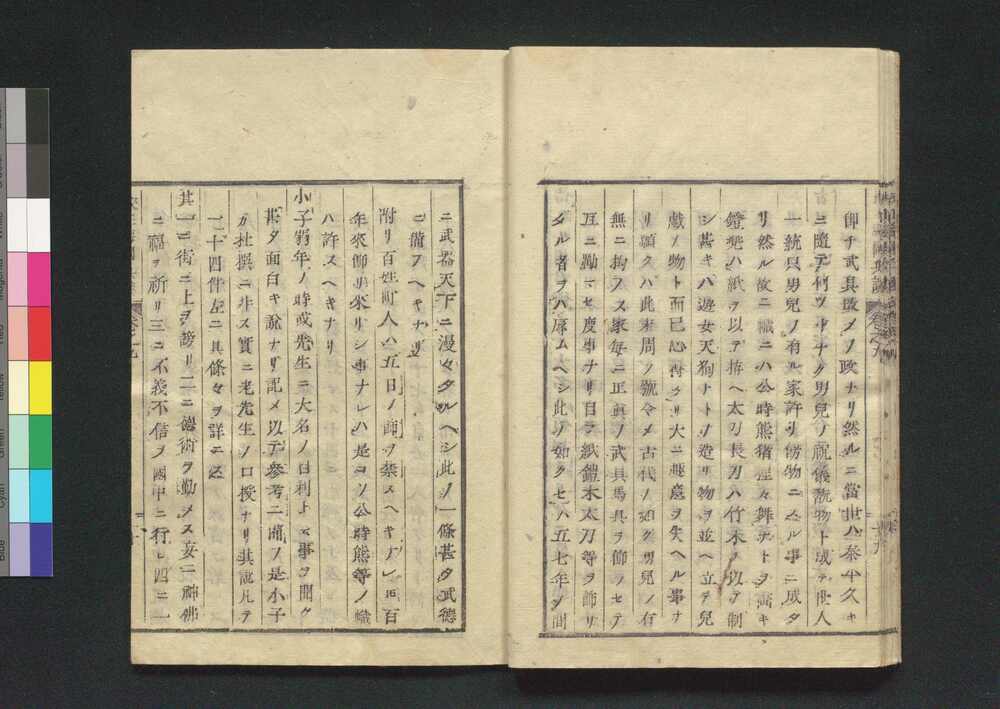 即チ武具改メノ政ナリ然ルニ當世ハ泰平久キ
ニ隨テ何ツトナク男兒ノ祝儀翫物ト成テ世人
一統只男兒ノ有ル家許リ餝物ニスル事ニ成タ
リ然ル故ニ幟ニハ公時熊猩々舞ナトヲ畵キ
鐙兜ハ紙ヲ以テ拵ヘ太刀長刀ハ竹木ヲ以テ制
シ甚キハ遊女天狗ナトノ造リ物ヲ並ヘ立テ兒
戯ノ物ト而已心得タリ大ニ趣意ヲ失ヘル事ナ
リ願クハ此末周ク號令メ古代ノ如ク男兒ノ有
無ニ拘ラス家毎ニ正眞ノ武具馬具ヲ餝ラセテ
互ニ勵マセ度事ナリ自ラ紙鎧木太刀等ヲ餝リ
タル者ヲハ辱ムヘシ此ノ如クセハ五七年ノ間
ニ武器天下ニ漫々タルヘシ此ノ一條甚タ武德
ニ備フヘキナリ
附リ百姓町人ハ五日ノ餝ヲ禁スヘキナレ𪜈百
年來餝リ來リシ事ナレハ是ヨリ公時熊等ノ幟
ハ許スヘキナリ
小子弱年ノ時或先生ニ大名ノ日利ト云事ヲ聞ク
甚タ面白キ說ナリ記メ以テ參考ニ備フ是小子
カ杜撰ニ非ス實ニ老先生ノ口授ナリ其說凡テ
二十四件左ニ其條々ヲ詳ニス
其一ニ街ニ上ヲ謗リ二ニ德術ヲ勤メス妄ニ神佛
ニ福ヲ祈リ三ニ不義不信ヲ國中ニ行レ四ニ二